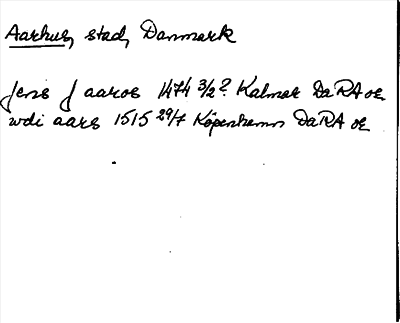 Aarhus, stad, Danmark
Jens J aaros 1474 3/2? Kalmar DaRA oe
wdi aars 1515 29/7 Köpenhamn DaRA oe